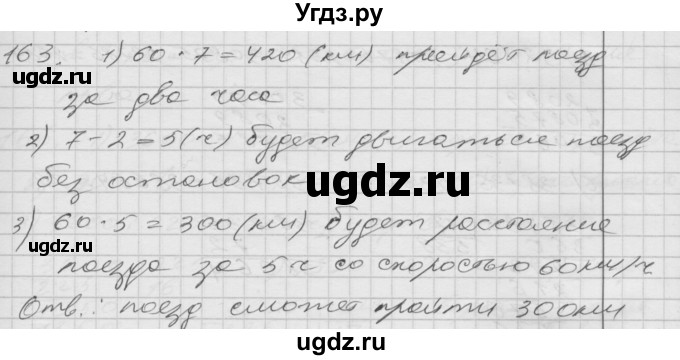 Угдз.ру
163. 1) 60 · 7 = 420 (км) пройдёт поезд
за два часа
2) 7 - 2 = 5 (ч) будет двигаться поезд
без остановок
3) 60 · 5 = 300 (км) будет расстояние
поезда за 5 ч со скоростью 60 км/ч
Отв.: поезд сможет пройти 300 км
ugdz.ru
ugdz.ru
ugdz.ru
ugdz.ru
ugdz.ru
ugdz.ru
ugdz.ru